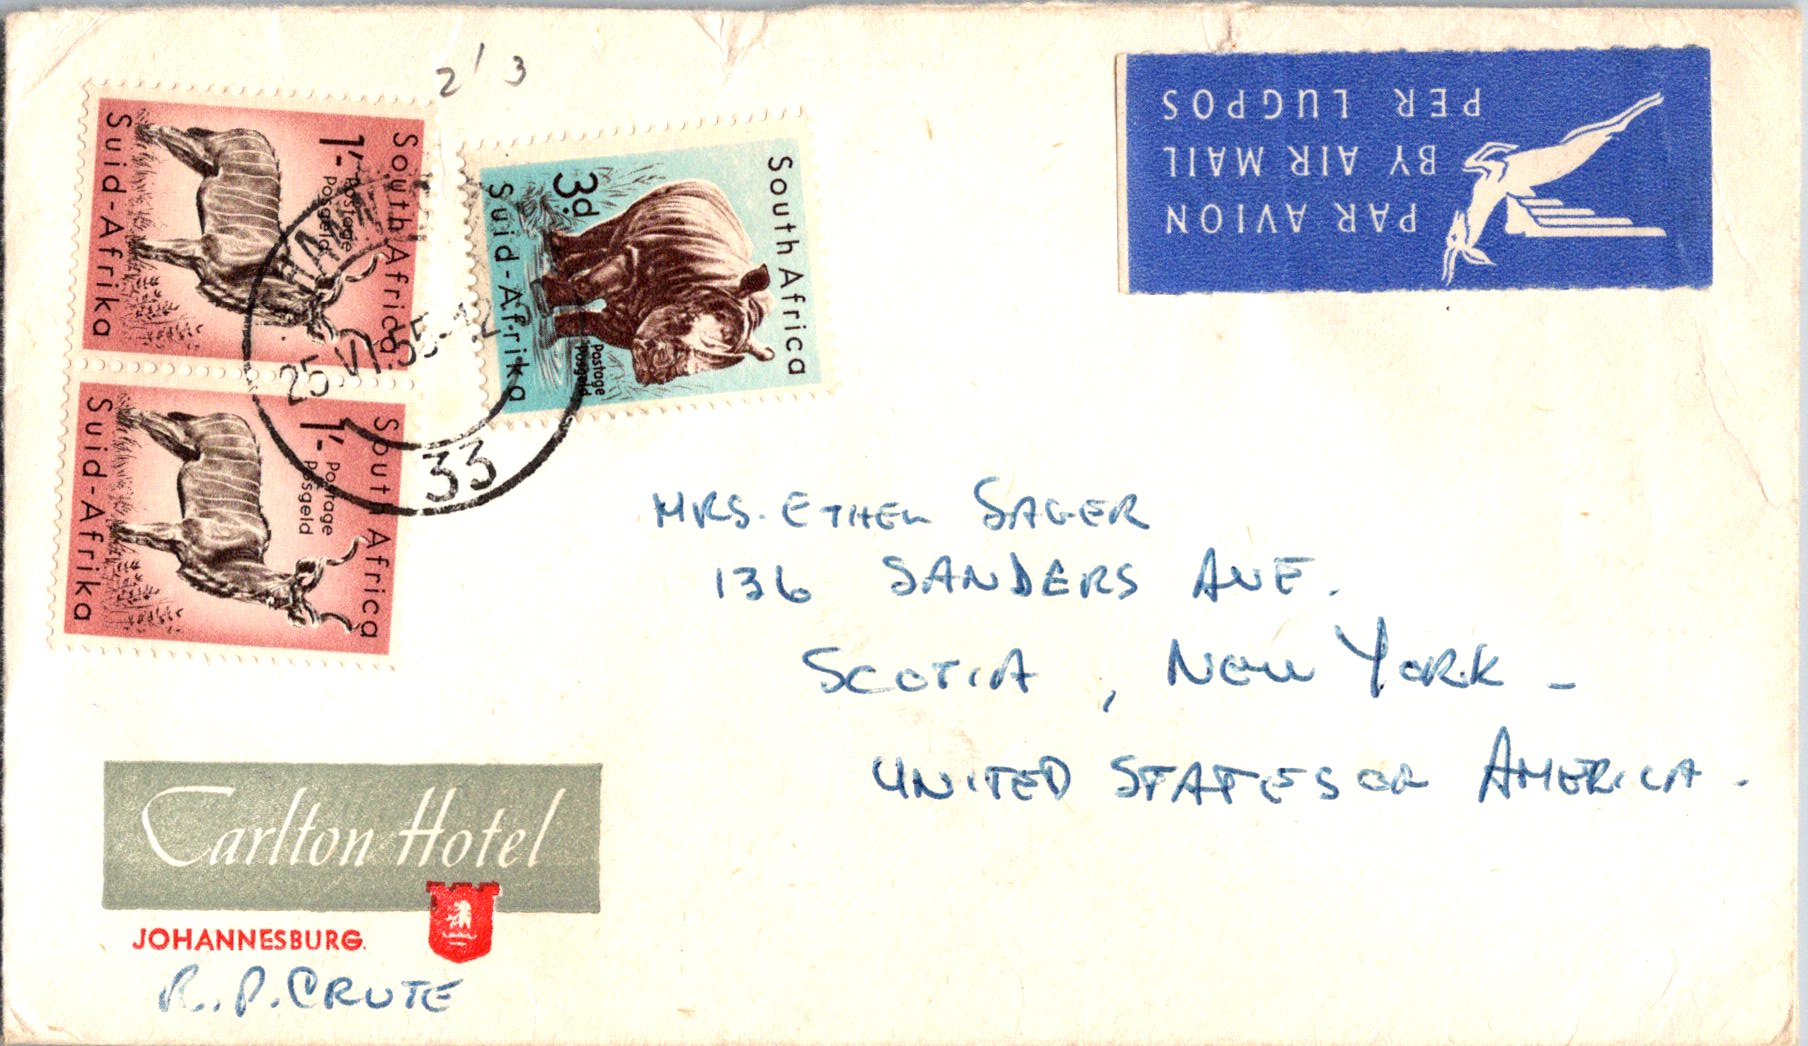 2/3
South Africa
1/-
Postage
Posgeld
Suid-Afrika
South Africa
3d.
Postage
Posgeld
Suid-Afrika
South Africa
1/-
Postage
Posgeld
Suid-Afrika
25 VI 55-12
33
PAR AVION
BY AIR MAIL
PER LUGPOS
MRS. ETHEL SAGER
136 SANDERS AVE.
SCOTIA, NEW YORK -
UNITED STATES OF AMERICA.
Carlton Hotel
JOHANNESBURG.
R. P. CRUTE